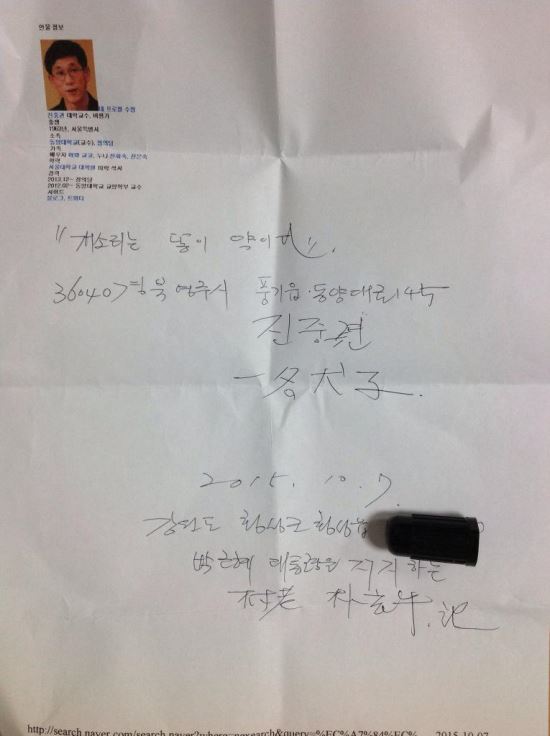 인물정보
내 프로필 수정
진중권 대학교수, 비평가
출생
1963년, 서울특별시
소속
동양대학교(교수), 정의당
가족
학력
서울대학교 대학원 미학 석사
경력
2013.12~ 정의당
2012.02~ 동양대학교 교양학부 교수
사이트
블로그, 트위터
"개소리는 똥이 약이다".
36040 경북 영주시 풍기읍 동양대로 145
진중견
一名 犬子.
2015. 10. 7.
강원도 횡성군 횡성읍
박근혜 대통령을 지지하는
村老 朴 記
http://search.naver.com/search.naver?where=nexearch&query=%EC%A7%84%EC% 2015-10-07